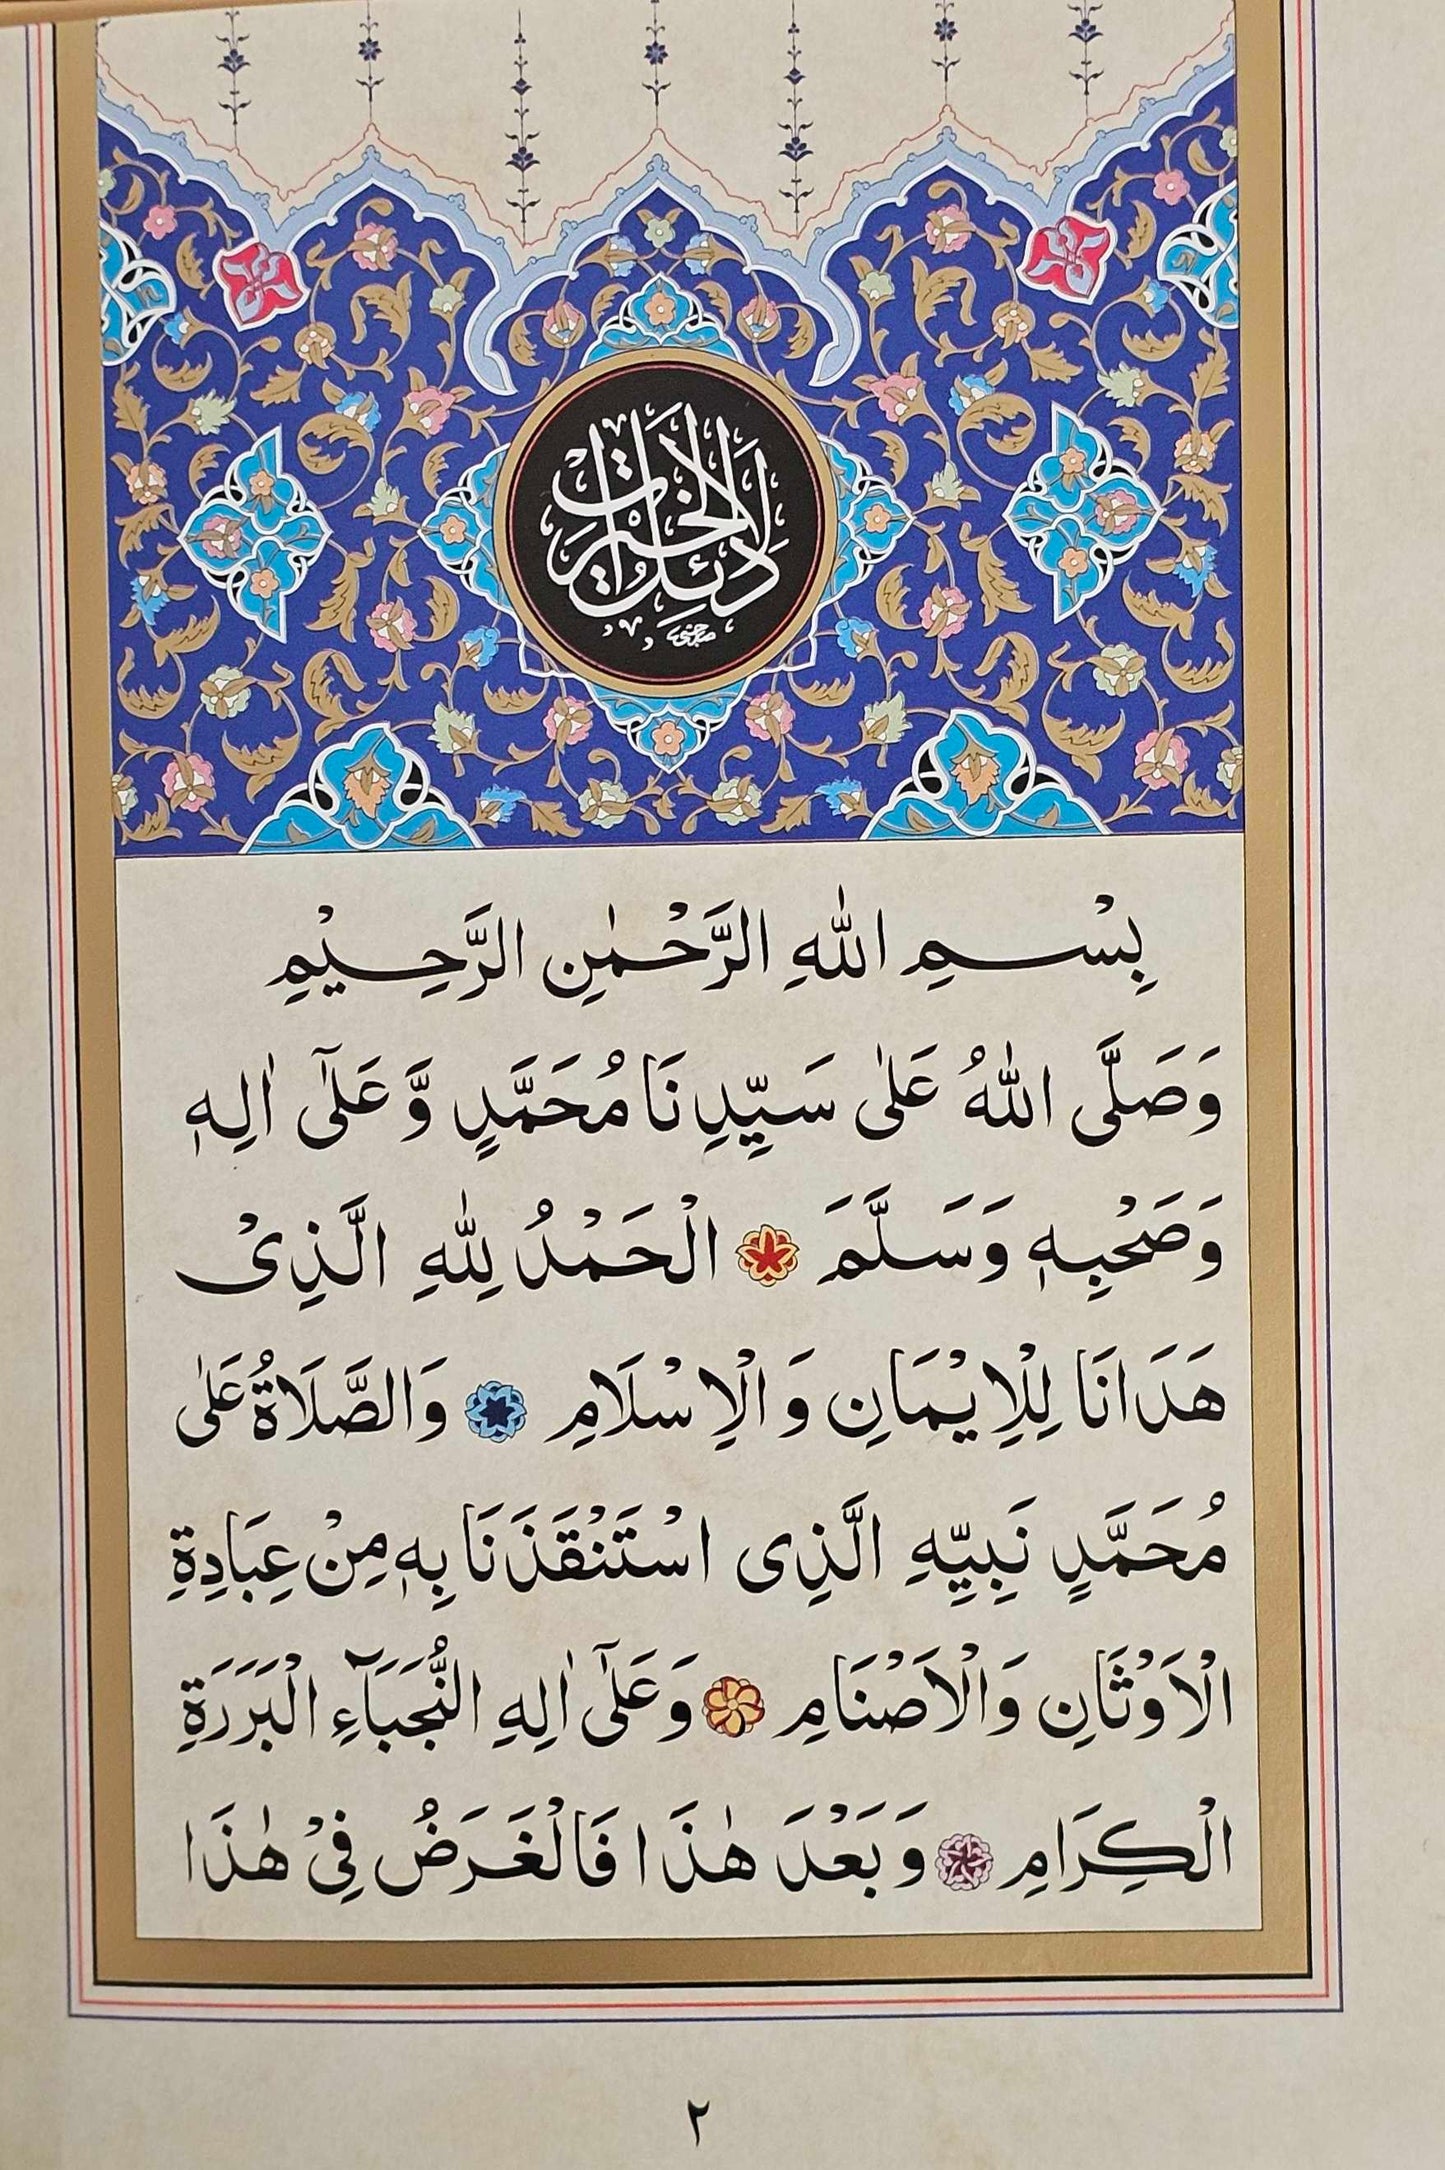 دلائل الخيرات
بِسْمِ اللّٰهِ الرَّحْمٰنِ الرَّحِيْمِ
وَصَلَّى اللّٰهُ عَلٰى سَيِّدِنَا مُحَمَّدٍ وَّعَلٰٓى اٰلِهٖ
وَصَحْبِهٖ وَسَلَّمَ الْحَمْدُ لِلّٰهِ الَّذِىْ
هَدَانَا لِلْاِيْمَانِ وَالْاِسْلَامِ وَالصَّلَاةُ عَلٰى
مُحَمَّدٍ نَبِيِّهِ الَّذِى اسْتَنْقَذَنَا بِهٖ مِنْ عِبَادِةِ
الْاَوْثَانِ وَالْاَصْنَامِ وَعَلٰٓى اٰلِهِ النُّجَبَآءِ الْبَرَرَةِ
الْكِرَامِ وَبَعْدَ هٰذَا فَالْغَرَضُ فِىْ هٰذَا
٢